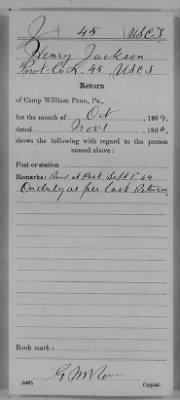 J 45 USCT
Henry Jackson
Pvt Co K. 45 USCT
Return
of Camp William Penn, Pa.,
for the month of Oct, 1864,
dated Nov 1, 1864,
shows the following with regard to the person
named above:
Post or station
Remarks: Recd at Post Sept 1" 64
On duty as per last Return
Book mark:
(546)
Copyist.